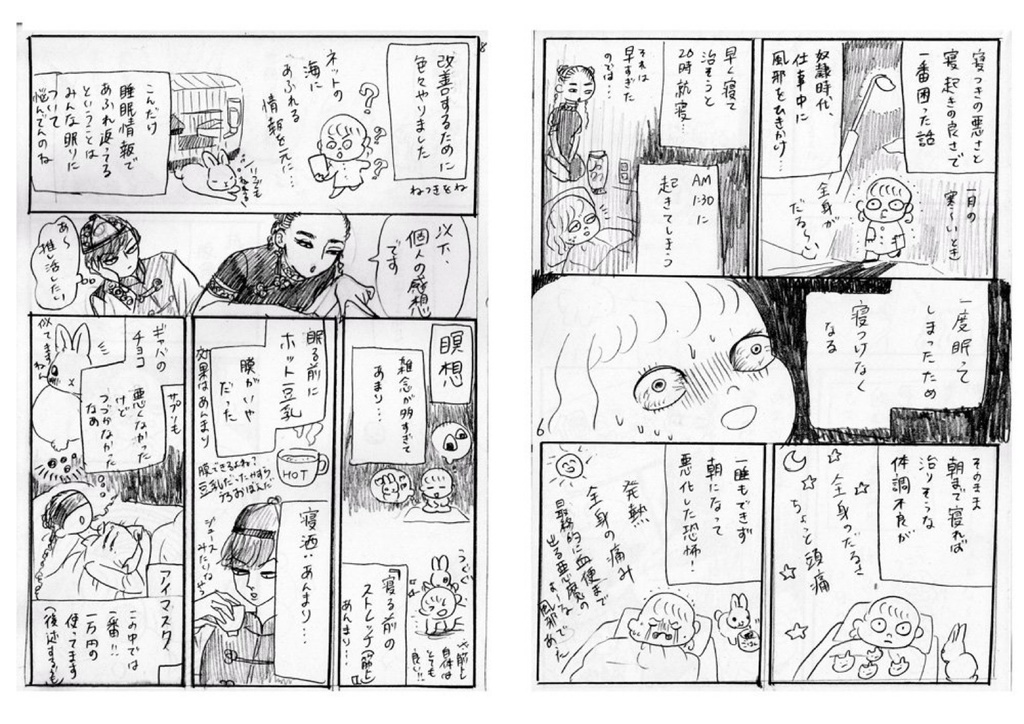 寝つきの悪さと
寝起きの良さで
一番困った話
奴隷時代、
仕事中に
風邪をひきかけ!
一月の
寒〜いとき
全身が
だる〜い
早く寝て
治そうと
20時就寝…
それは
早すぎた
のでは…
AM
1:30に
起きてしまう
一度眠って
しまったため
寝つけなく
なる
6
そのまま
朝まで寝れば
治りそうな
体調不良が
全身のだるさ
ちょっと頭痛
一睡もできず
朝になって
悪化した恐怖!
発熱
全身の痛み
最終的に血便まで
出る悪魔の
風邪であった
8
改善するために
色々やりました
ねつきをね
ネットの
海に
あふれる
情報を元に…
? ? ? ?
こんだけ
睡眠情報で
あふれ返ってる
ということは
みんな眠りに
ついて
悩んでんのね
以下、
個人の感想
です
あ〜
推し活したい
瞑想
雑念が多すぎて
あまり…
うぐぐ
寝る前の
ストレッチ(筋トレ)
あんまり…
筋トレ
自体は
とても
良い!!
眠る前に
ホット豆乳
膜がいや
だった
効果はあんまり
HOT
膜できるよね?
寝酒…あんまり…
ジュース
みたいなやつ
ギャバの
チョコ
サプリも
悪くなかった
けど
つづかなかった
なあ
似てますねん
アイマスク
この中では
一番!!
一万円の
使ってます
(後述するぞ)